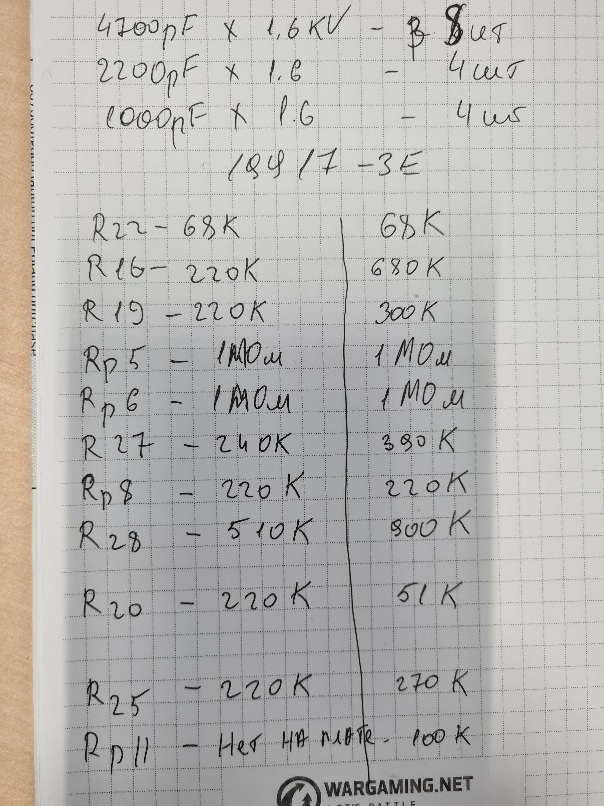 4700pF x 1,6KV - 8 шт
2200pF x 1.6 - 4 шт
1000pF x 1.6 - 4 шт
R22 - 68K 68K
R16 - 220K 680K
R19 - 220K 300K
Rp5 - 1МОм 1 МОм
Rp6 - 1МОм 1 МОм
R27 - 240K 390K
Rp8 - 220K 220K
R28 - 510K 900K
R20 - 220K 51K
R25 - 220K 270K
Rp11 - Нет на плате. 100K
WARGAMING.NET
LET'S BATTLE